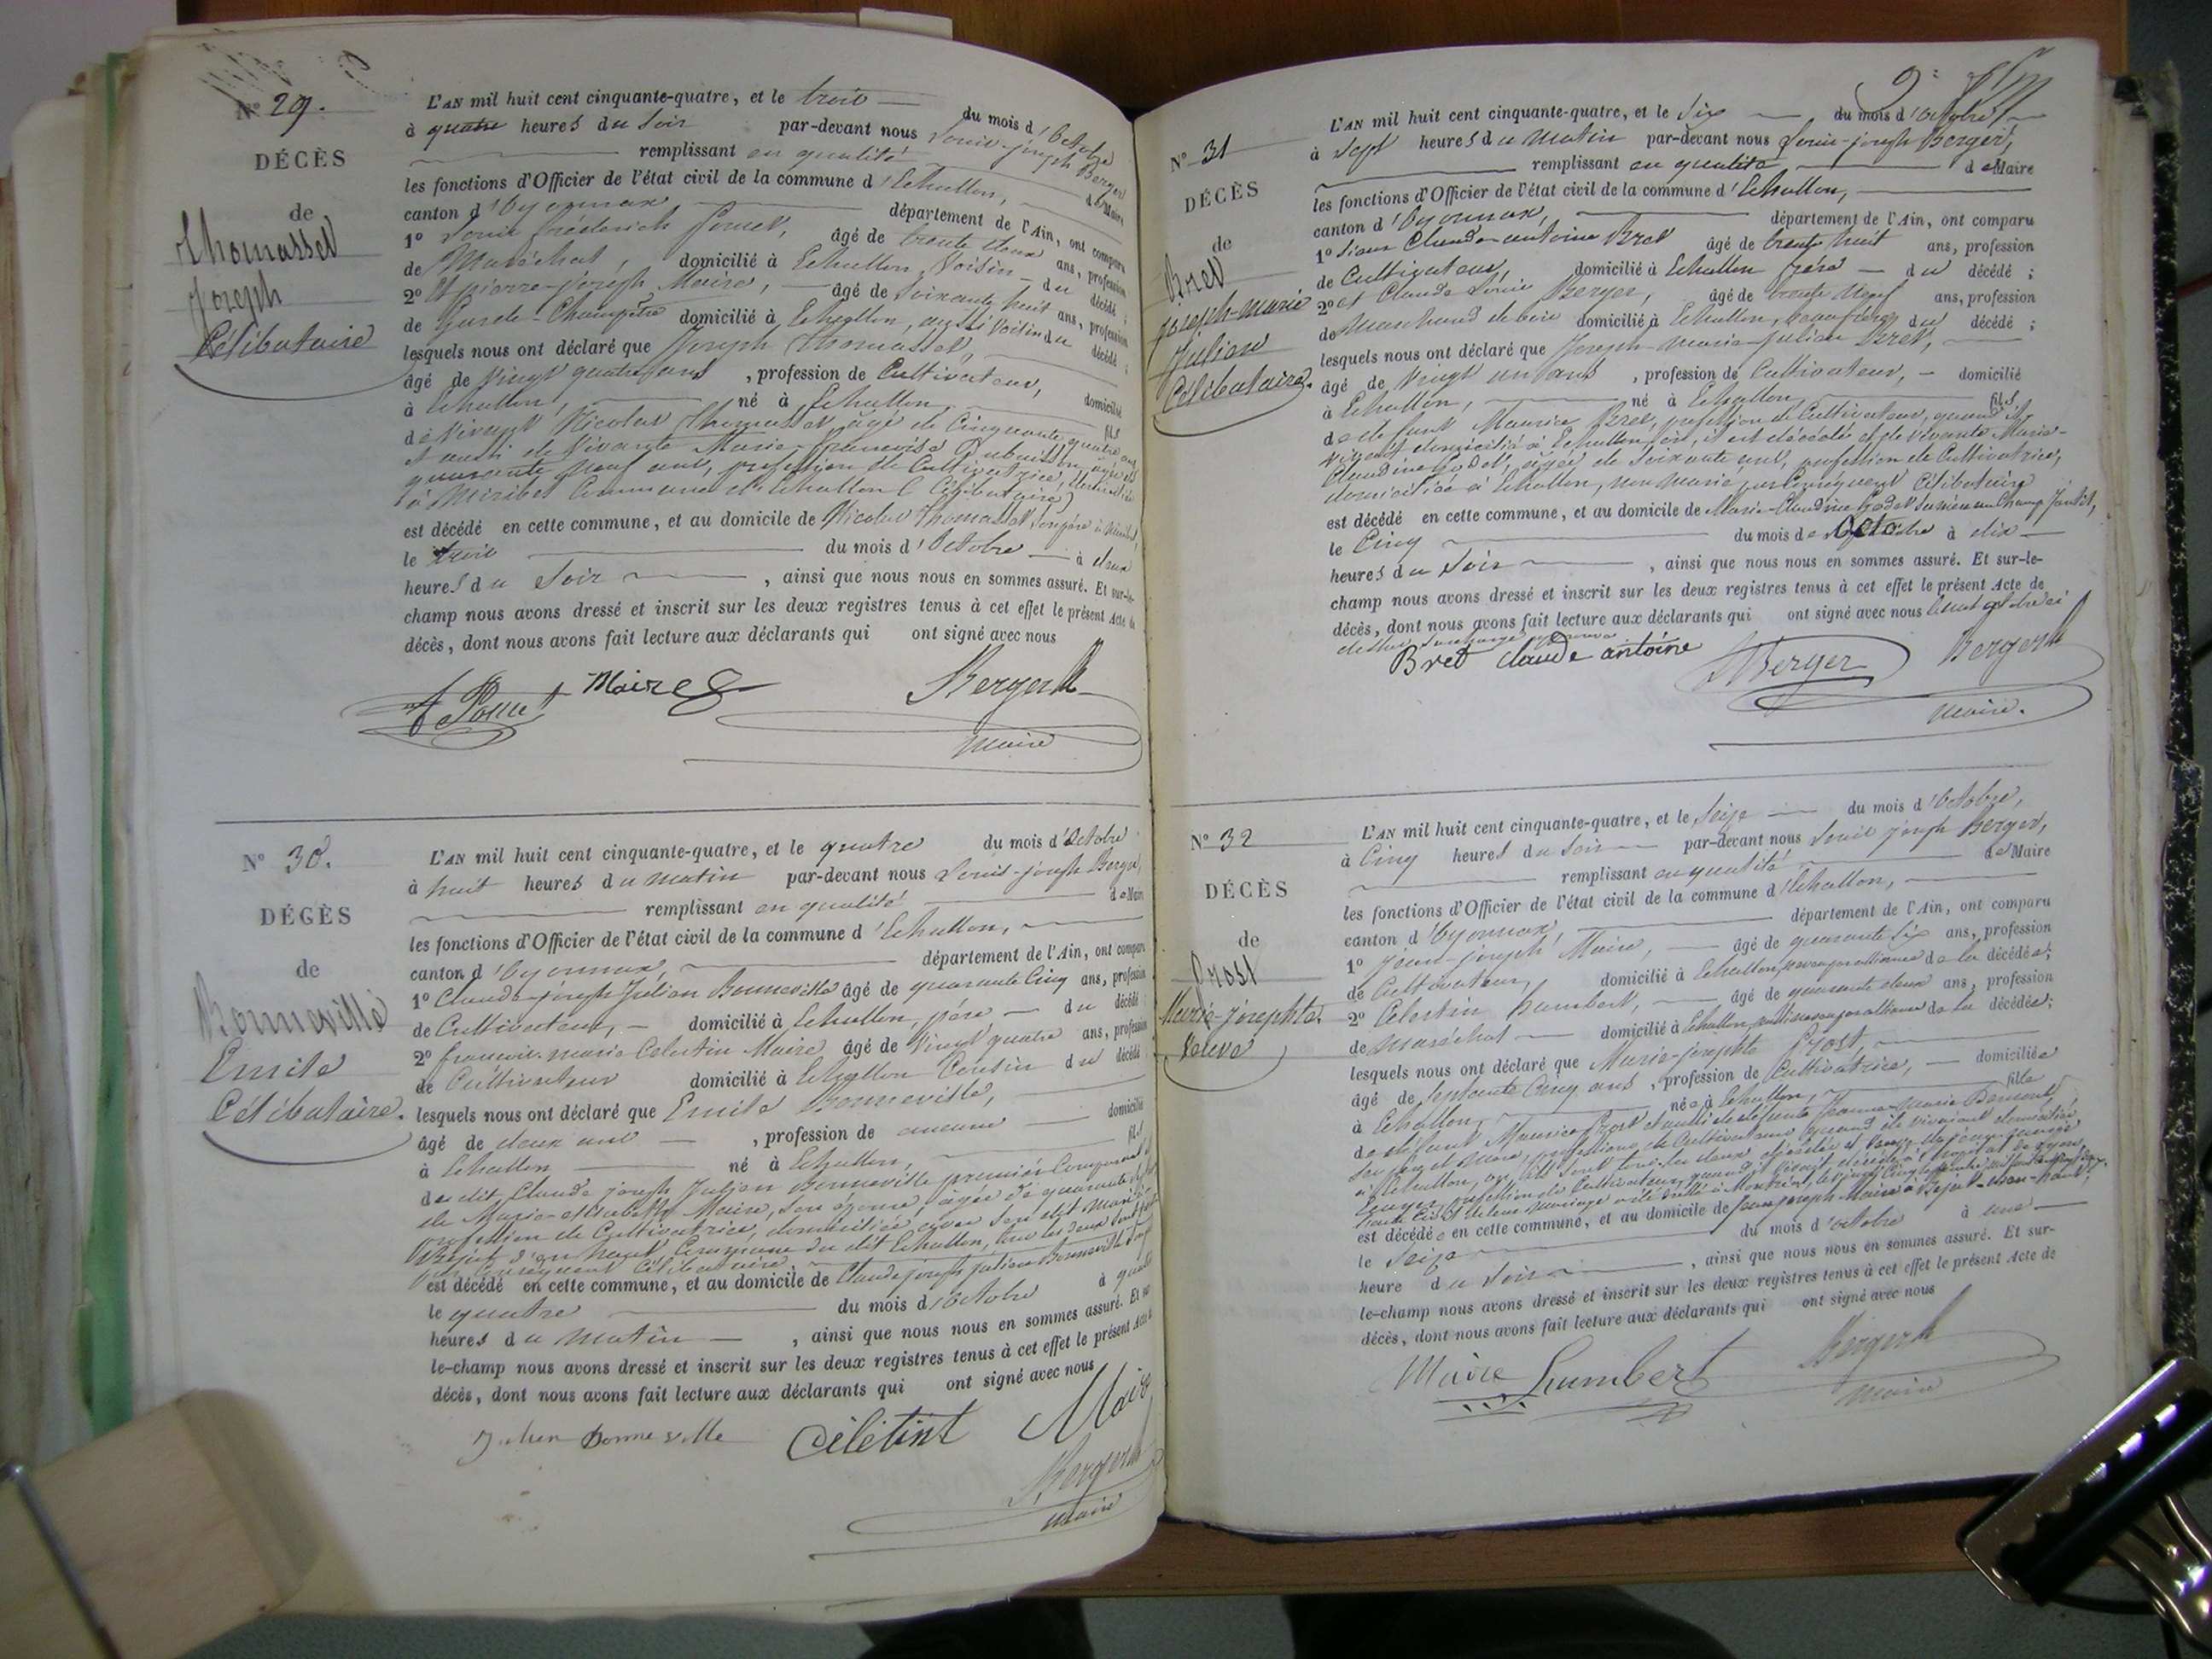 N° 29.
DÉCÈS
de
Thomasset
Joseph
Célibataire
L'AN mil huit cent cinquante-quatre, et le trois du mois d'Octobre
à quatre heures du Soir par-devant nous Louis-joseph Berger
remplissant en qualité de Maire
les fonctions d'Officier de l'état civil de la commune d'Echallon,
canton d'Oyonnax département de l'Ain, ont comparu
1° Louis frédérich âgé de trente deux ans, profession
de Maréchal, domicilié à Echallon, Voisin du décédé ;
2° Et pierre-joseph Maire, âgé de Soixante huit ans, profession
de Garde-Champêtre domicilié à Echallon, aussi Voisin du décédé ;
lesquels nous ont déclaré que Joseph Thomasset,
âgé de Vingt quatre ans, profession de Cultivateur, domicilié
à Echallon, né à Echallon, fils
de Vivant Nicolas Thomasset âgé de Cinquante quatre ans
et aussi de Vivante Marie-françoise Dubuisson, âgée de
quarante neuf ans, profession de Cultivatrice,
à Miribel Commune d'Echallon (Célibataire)
est décédé en cette commune, et au domicile de Nicolas Thomasset Son père à Miribel,
le trois du mois d'Octobre à deux
heures du Soir, ainsi que nous nous en sommes assuré. Et sur-le-
champ nous avons dressé et inscrit sur les deux registres tenus à cet effet le présent Acte de
décès, dont nous avons fait lecture aux déclarants qui ont signé avec nous
Maire Berger
maire
N° 30.
DÉCÈS
de
Bonneville
Emile
Célibataire.
L'AN mil huit cent cinquante-quatre, et le quatre du mois d'Octobre
à huit heures du matin par-devant nous Louis-joseph Berger,
remplissant en qualité de Maire
les fonctions d'Officier de l'état civil de la commune d'Echallon,
canton d'Oyonnax, département de l'Ain, ont comparu
1° Claude-joseph Julien Bonneville âgé de quarante Cinq ans, profession
de Cultivateur, domicilié à Echallon, père du décédé
2° françois-marie Célestin Maire âgé de Vingt quatre ans, profession
de Cultivateur domicilié à Echallon Cousin du décédé
lesquels nous ont déclaré que Emile Bonneville,
âgé de deux ans, profession de aucune domicilié
à Echallon né à Echallon, fils
du dit Claude joseph Julien Bonneville premier Comparant et
de Marie-elisabeth Maire, Son épouse, âgée de quarante
profession de Cultivatrice, domiciliée avec Son dit Mari à
d'en haut, Commune du dit Echallon,
par Conséquent Célibataire
est décédé en cette commune, et au domicile de Claude joseph julien Bonneville
le quatre du mois d'Octobre à quatre
heures du matin, ainsi que nous nous en sommes assuré. Et sur-
le-champ nous avons dressé et inscrit sur les deux registres tenus à cet effet le présent Acte de
décès, dont nous avons fait lecture aux déclarants qui ont signé avec nous
Julien Bonneville Céletint Maire
Berger
maire
N° 31
DÉCÈS
de
Bret
joseph-marie
Julien
Célibataire.
L'AN mil huit cent cinquante-quatre, et le Six du mois d'Octobre
à Sept heures du matin par-devant nous Louis-joseph Berger,
remplissant en qualité de Maire
les fonctions d'Officier de l'état civil de la commune d'Echallon,
canton d'Oyonnax, département de l'Ain, ont comparu
1° Sieur Claude-antoine Bret âgé de trente huit ans, profession
de Cultivateur, domicilié à Echallon frère du décédé ;
2° et Claude Louis Berger, âgé de trente Neuf ans, profession
de Marchand de bois domicilié à Echallon, beau frère du décédé ;
lesquels nous ont déclaré que Joseph-marie-julien Bret,
âgé de Vingt un ans, profession de Cultivateur, domicilié
à Echallon, né à Echallon, fils
de defunt Maurice Bret, profession de Cultivateur, quand il
vivant domicilié à Echallon où il est décédé et de Vivante Marie-
Claudine Godet, âgée de Soixante ans, profession de Cultivatrice,
domiciliée à Echallon, non marié, par Conséquent Célibataire
est décédé en cette commune, et au domicile de Marie-Claudine Godet Sa mère
le Cinq du mois de Octobre à dix
heures du Soir, ainsi que nous nous en sommes assuré. Et sur-le-
champ nous avons dressé et inscrit sur les deux registres tenus à cet effet le présent Acte de
décès, dont nous avons fait lecture aux déclarants qui ont signé avec nous le mot octobre ci
dessus surchargé approuvé
Bret claude antoine Berger Berger
maire.
N° 32
DÉCÈS
de
Prost
Marie-josephte.
veuve
L'AN mil huit cent cinquante-quatre, et le Seize du mois d'Octobre,
à Cinq heures du Soir par-devant nous Louis joseph Berger,
remplissant en qualité de Maire
les fonctions d'Officier de l'état civil de la commune d'Echallon,
canton d'Oyonnax, département de l'Ain, ont comparu
1° Jean-joseph Maire, âgé de quarante Six ans, profession
de Cultivateur, domicilié à Echallon, neveu par alliance de la décédée ;
2° Célestin humbert, âgé de quarante deux ans, profession
de Maréchal domicilié à Echallon, aussi neveu par alliance de la décédée ;
lesquels nous ont déclaré que Marie-josephte Prost,
âgé de Septante Cinq ans, profession de Cultivatrice, domiciliée
à Echallon, née à Echallon, fille
de défunt Maurice Prost et aussi de défunte Jeanne-Marie
à Echallon, où ils Sont tous les deux décédés et
est décédée en cette commune, et au domicile de jean joseph Maire
le Seize du mois d'Octobre à une
heure du Soir, ainsi que nous nous en sommes assuré. Et sur-
le-champ nous avons dressé et inscrit sur les deux registres tenus à cet effet le présent Acte de
décès, dont nous avons fait lecture aux déclarants qui ont signé avec nous
Maire humbert Berger
maire